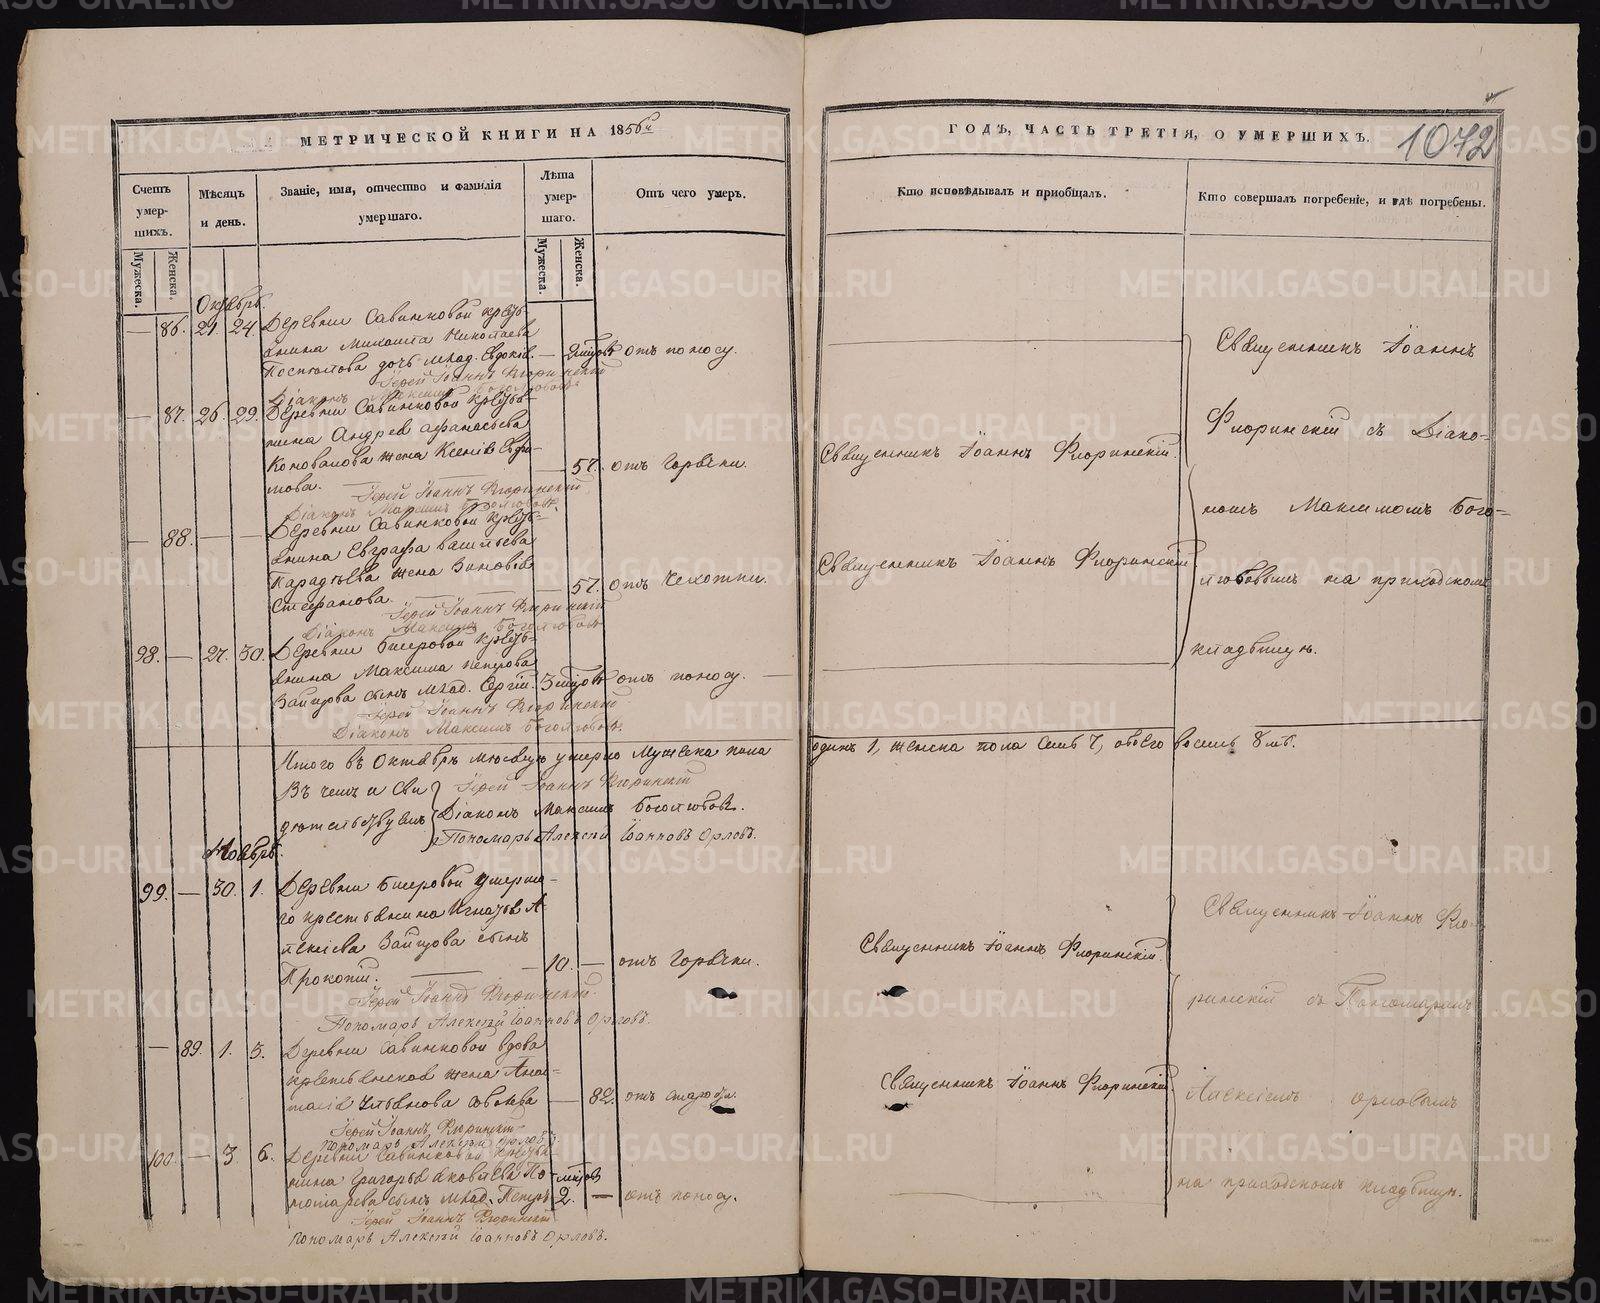 МЕТРИЧЕСКОЙ КНИГИ НА 1856й
ГОДЪ, ЧАСТЬ ТРЕТІЯ, О УМЕРШИХЪ.
1072
Счетъ умер-шихъ.
Мѣсяцъ и день.
Званіе, имя, отчество и фамилія умершаго.
Лѣта умер-шаго.
Отъ чего умеръ.
Кто исповѣдывалъ и пріобщалъ.
Кто совершалъ погребеніе, и гдѣ погребены.
Мужеска.
Женска.
Мужеска.
Женска.
Октябрь.
— 86. 21. 24. Деревни Савинковой кресть-
янина Михаила Николаева
дочь млад. Евдокія. — 2 отъ поносу.
Іерей Іоаннъ Флоринскій
Діаконъ Максимъ Боголюбовъ
— 87. 26. 29. Деревни Савинковой кресть-
янина Андрея Афанасьева
Коновалова жена Ксенія Евфи-
мова. — 57. отъ горячки.
Священникъ Іоаннъ Флоринскій.
Іерей Іоаннъ Флоринскій
Діаконъ Максимъ Боголюбовъ.
— 88. — — Деревни Савинковой кресть-
янина Евграфа Васильева
жена Зиновія
Стефанова. — 57. отъ чехотки.
Священникъ Іоаннъ Флоринскій
Іерей Іоаннъ Флоринскій
Діаконъ Максимъ Боголюбовъ
98. — 27. 30. Деревни Бисеровой кресть-
янина Максима Петрова
Зайцова сынъ млад. Сергій. 3 отъ поносу. —
Іерей Іоаннъ Флоринскій
Діаконъ Максимъ Боголюбовъ.
Священникъ Іоаннъ
Флоринскій съ Діако-
номъ Максимомъ Бого-
любовымъ на приходскомъ
кладбищѣ.
Итого въ Октябрѣ мѣсяцѣ умерло Мужеска пола
одинъ 1, женска пола семь 7, обоего восемь 8мь.
Въ чемъ и сви
дѣтельствуемъ
Іерей Іоаннъ Флоринскій
Діаконъ Максимъ Боголюбовъ.
Пономарь Алексѣй Іоанновъ Орловъ.
Ноябрь.
99. — 30. 1. Деревни Бисеровой умерша-
го крестьянина Игнатья А-
лексіева Зайцова сынъ
Прокопій. — 10. — отъ горячки.
Священникъ Іоаннъ Флоринскій.
Іерей Іоаннъ Флоринскій.
Пономарь Алексѣй Іоанновъ Орловъ.
— 89. 1. 3. Деревни Савинковой вдова
крестьянская жена Анас-
тасія — 82. отъ старости.
Священникъ Іоаннъ Флоринскій.
Іерей Іоаннъ Флоринскій
Пономарь Алексѣй Орловъ.
100. — 3 6. Деревни Савинковой кресть-
янина Григорья Яковлева По-
номарева сынъ млад. Петръ 2. — отъ поносу.
Іерей Іоаннъ Флоринскій
Пономарь Алексѣй Іоанновъ Орловъ.
Священникъ Іоаннъ Фло-
ринскій съ Пономаремъ
Алексіемъ Орловымъ
на приходскомъ кладбищѣ.
METRIKI.GASO-URAL.RU